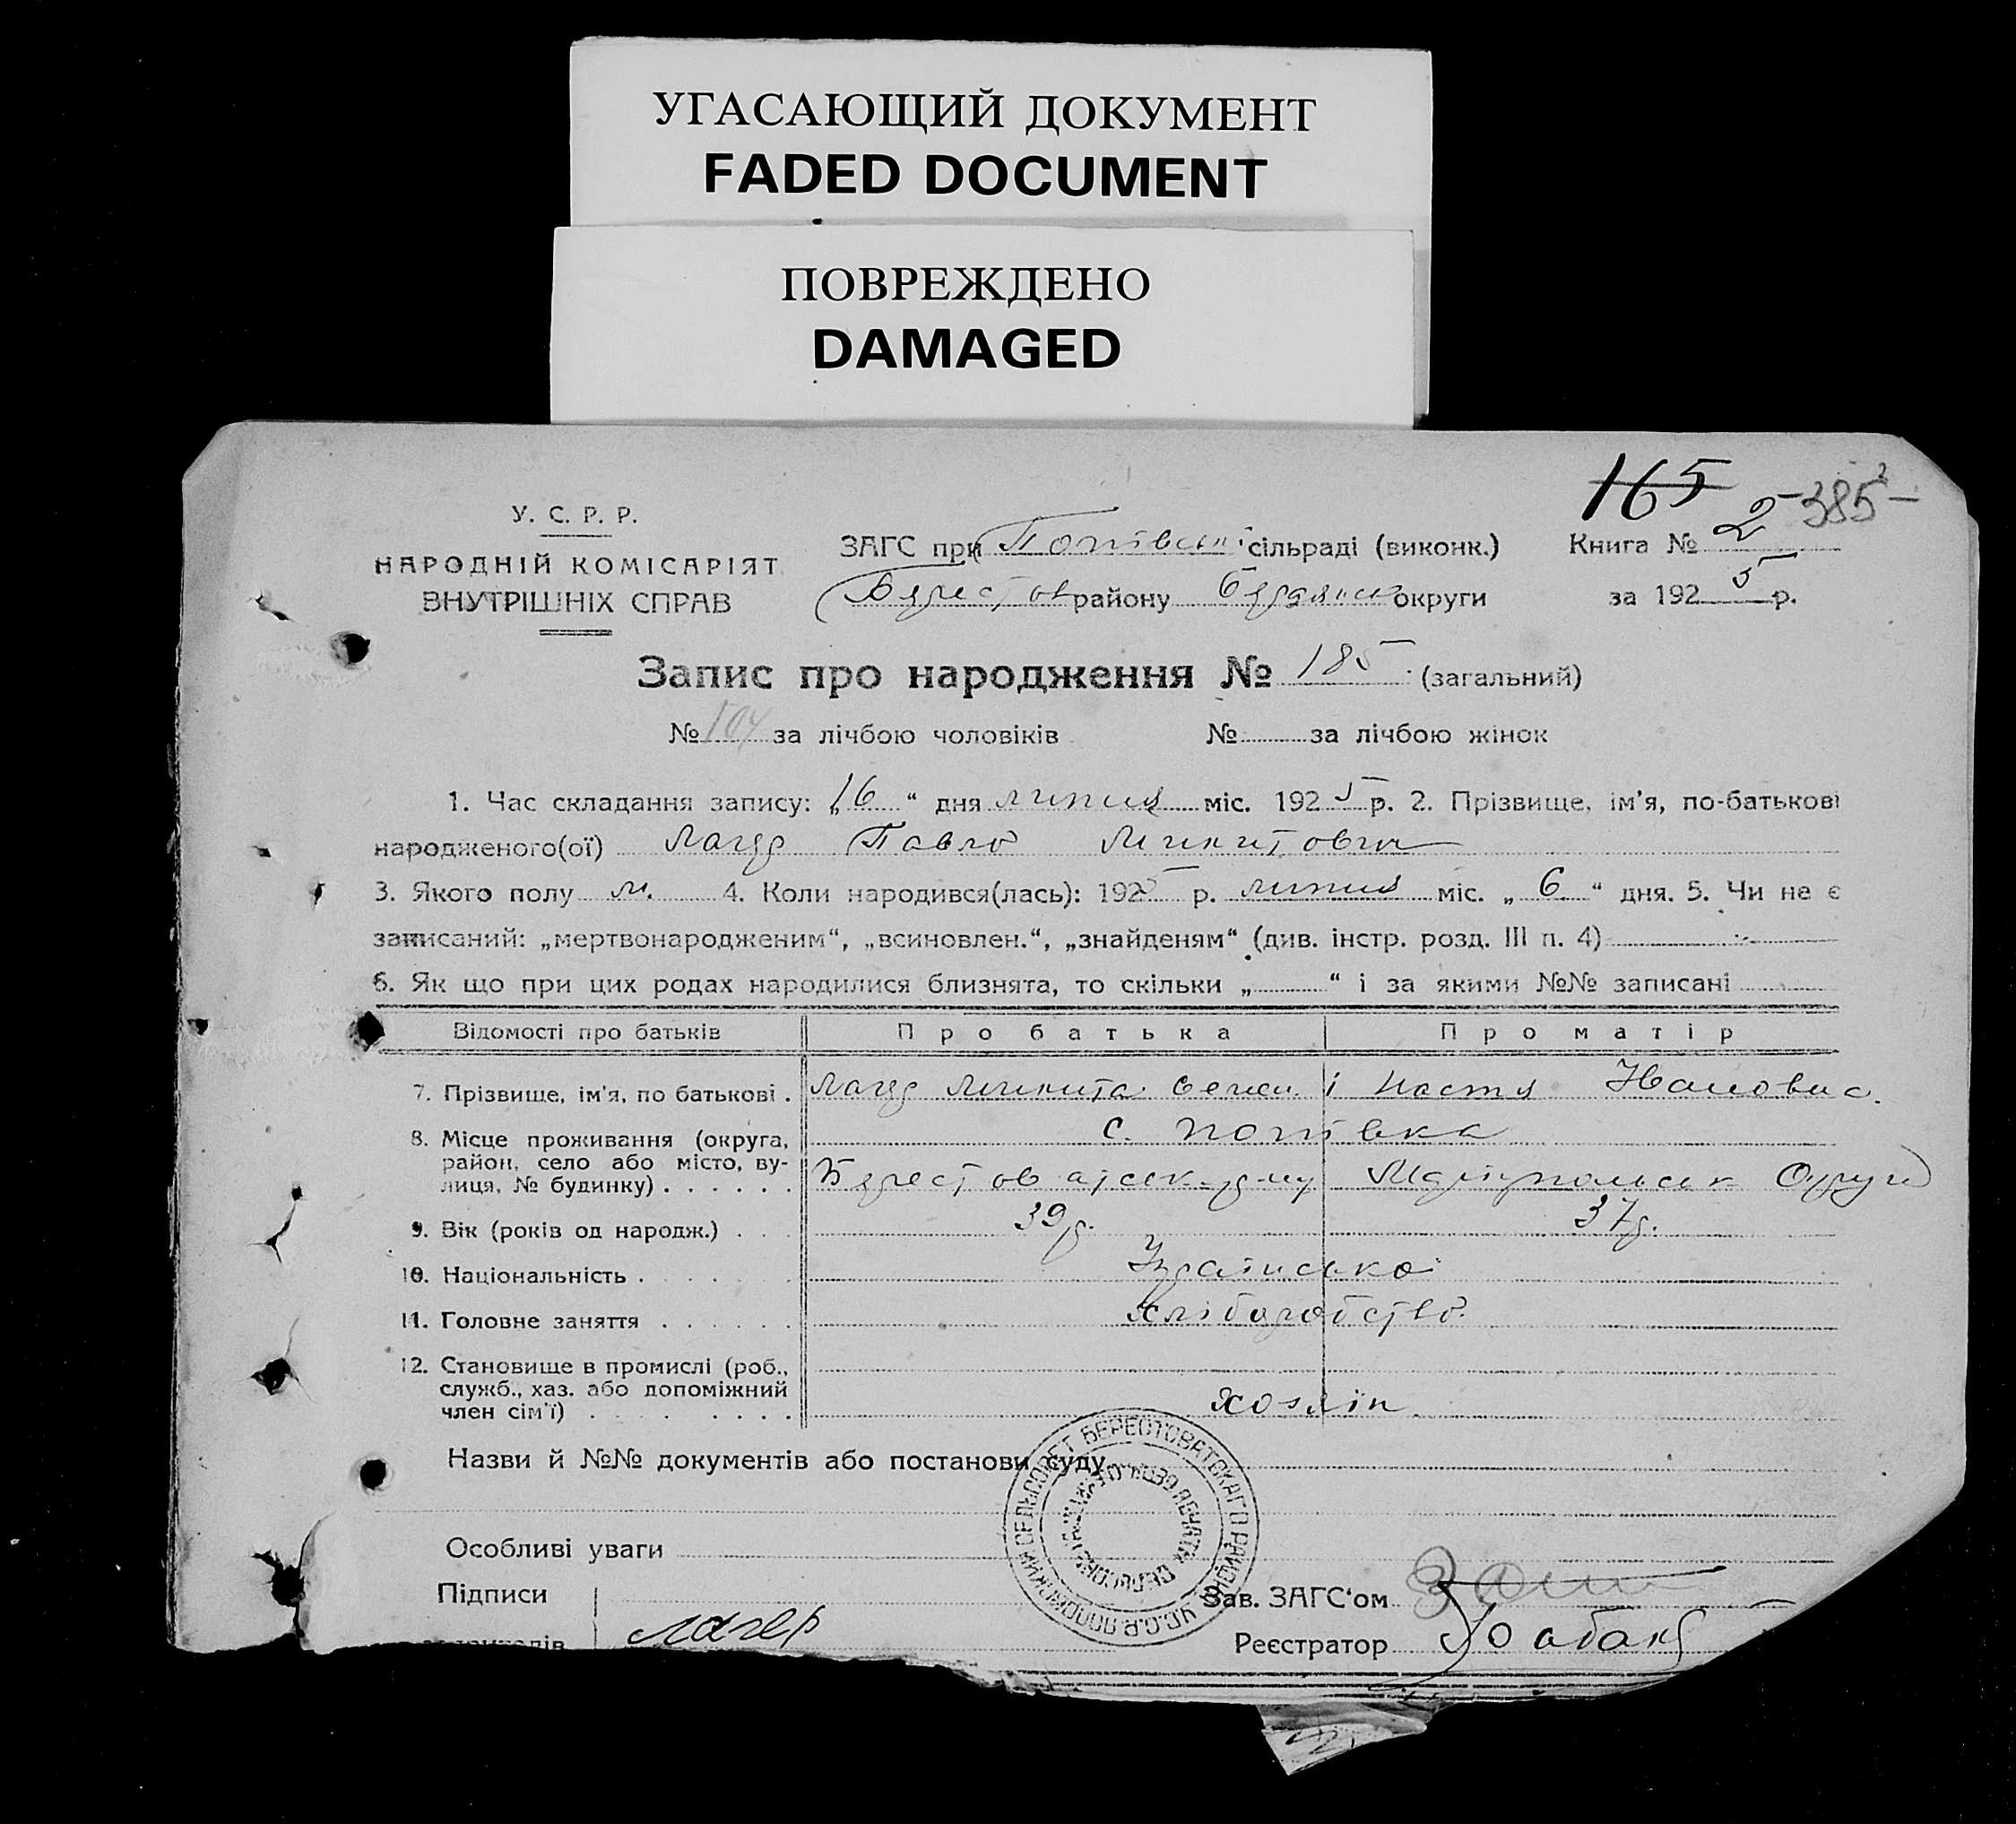 УГАСАЮЩИЙ ДОКУМЕНТ
FADED DOCUMENT
ПОВРЕЖДЕНО
DAMAGED
165 2-385
У. С. Р. Р.
НАРОДНІЙ КОМІСАРІЯТ
ВНУТРІШНІХ СПРАВ
ЗАГС при Попівськ. сільраді (виконк.) Книга № 2
Берестов району Бердянськ округи за 1925 р.
Запис про народження № 185. (загальний)
№ 104 за лічбою чоловіків № за лічбою жінок
1. Час складання запису: „16“ дня липня міс. 1925 р. 2. Прізвище, ім'я, по-батькові
народженого(ої) Павло Микитович
3. Якого полу м. 4. Коли народився(лась): 1925 р. липня міс. „6“ дня. 5. Чи не є
записаний: „мертвонародженим“, „всиновлен.“, „знайденям“ (див. інстр. розд. III п. 4)
6. Як що при цих родах народилися близнята, то скільки „ “ і за якими №№ записані
Відомості про батьків Про батька Про матір
7. Прізвище, ім'я, по батькові . Микита і Настя
8. Місце проживання (округа, с. Попівка
район, село або місто, ву-
лиця, № будинку) . . . . . . Маріупольськ Округи
9. Вік (років од народж.) . . . 39 р. 37 р.
10. Національність . . . . . . Української
11. Головне заняття . . . . . . Хліборобство.
12. Становище в промислі (роб.,
служб., хаз. або допоміжний
член сім'ї) . . . . . . . хозяїн
Назви й №№ документів або постанови суду
Особливі уваги
Підписи
Зав. ЗАГС'ом
Реєстратор
СЕЛЬСОВЕТ БЕРЕСТОВАТСКАГО РАЙОНА